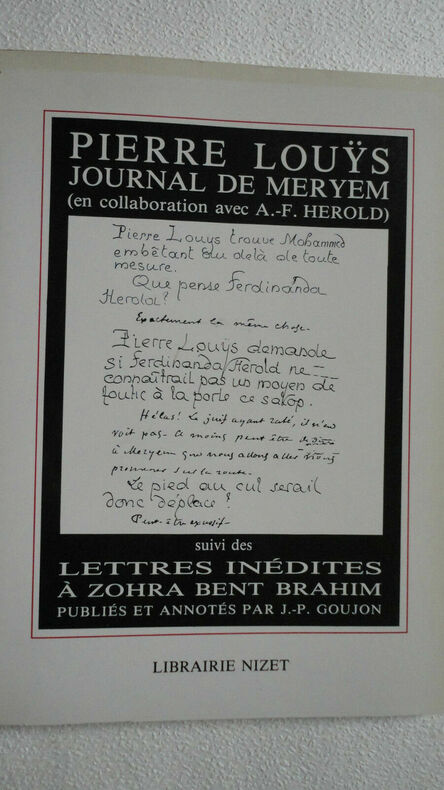 PIERRE LOUŸS
JOURNAL DE MERYEM
(en collaboration avec A.-F. HEROLD)
Pierre Louÿs trouve Mohammed
embêtant au delà de toute
mesure.
Que pense Ferdinanda
Herold?
Exactement la même chose.
Pierre Louÿs demande
si Ferdinanda Herold ne
connaîtrait pas un moyen de
foutre à la porte ce salop.
Hélas! Le juif ayant raté, il n'en
voit pas. à moins peut être de dire
à Meryem que nous allons aller nous
promener sur la route.
Le pied au cul serait
donc déplacé?
Peut-être excessif.
suivi des
LETTRES INÉDITES
À ZOHRA BENT BRAHIM
PUBLIÉS ET ANNOTÉS PAR J.-P. GOUJON
LIBRAIRIE NIZET